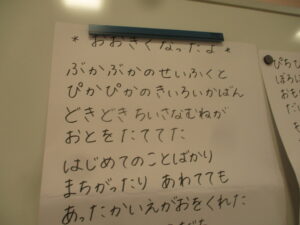 * おおきくなったよ *
ぶかぶかのせいふくと
ぴかぴかのきいろいかばん
どきどきちいさなむねが
おとをたててた
はじめてのことばかり
まちがったり あわてても
あったかいえがおをくれた